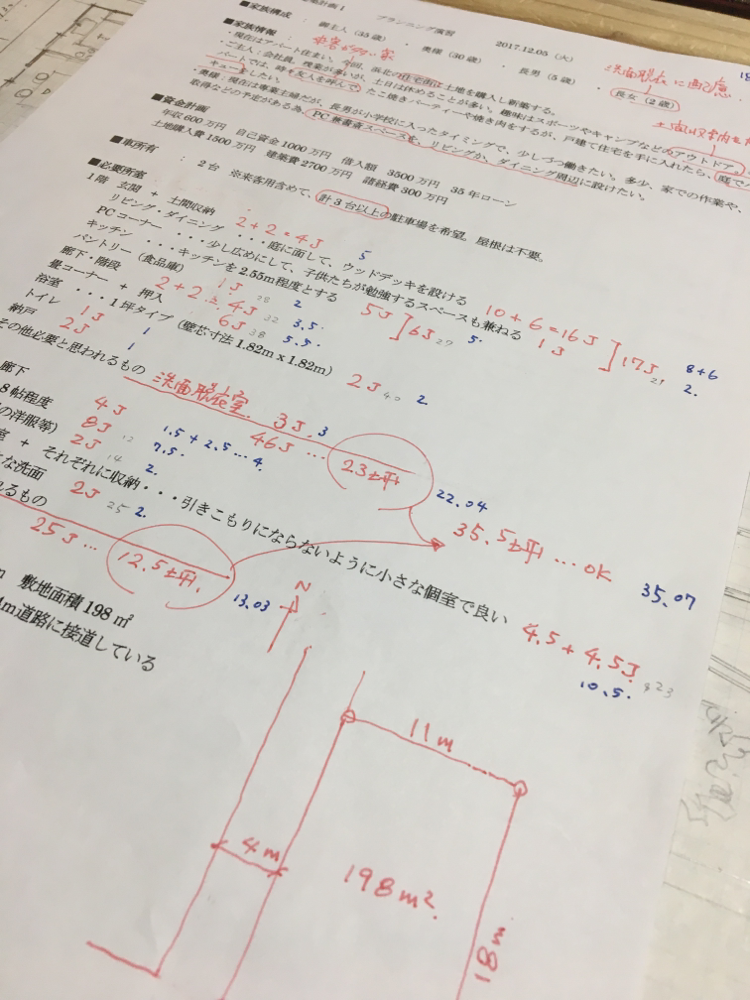 プランニング演習 2017.12.05 (火)
■家族構成 : 御主人 (35歳) ・ 奥様 (30歳) ・ 長男 (5歳) ・ 長女 (2歳)
洗面脱衣に配慮
■家族情報 :
・現在はアパート住まい。今回、浜北の住宅街に土地を購入し新築する。
・ご主人:会社員。残業が多いが、土日は休めることが多い。趣味はスポーツやキャンプなどのアウトドア。
パートでは、時々友人を呼んで、たこ焼きパーティーや焼き肉をするが、戸建て住宅を手に入れたら、庭で
キューをしたい。
・奥様:現在は専業主婦だが、長男が小学校に入ったタイミングで、少しづつ働きたい。多少、家での作業や、
取得などの予定がある為、PC兼書斎スペースを、リビングか、ダイニング周辺に設けたい。
■資金計画
年収600万円 自己資金1000万円 借入額 3500万円 35年ローン
土地購入費1500万円 建築費2700万円 諸経費300万円
■車所有 : 2台 ※来客用含めて、計3台以上の駐車場を希望。屋根は不要。
■必要所室
1階 玄関 + 土間収納 2+2=4J 5
リビング・ダイニング ・・・庭に面して、ウッドデッキを設ける 10+6=16J
PCコーナー ・・・少し広めにして、子供たちが勉強するスペースも兼ねる 1J ]17J 21 8+6 2.
キッチン ・・・キッチンを2.55m程度とする 5J ]6J 27 5.
パントリー (食品庫) 1J 28 2.
廊下・階段 2+2=4J 32 3.5
畳コーナー + 押入 6J 38 5.5
浴室 ・・・1坪タイプ (壁芯寸法1.82m x 1.82m) 2J 40 2.
トイレ 1J 1
納戸 2J 1
その他必要と思われるもの 洗面脱衣室 3J 3
46J … 23坪 22.04
廊下 4J
8帖程度 8J 12 1.5+2.5…4.
の洋服等) 2J 14 7.5.
室 + それぞれに収納・・・引きこもりにならないように小さな個室で良い 4.5+4.5J 23 10.5.
な洗面 2J 25 2.
れるもの
25J… 12.5坪. 13.03
35.5坪 … OK 35.07
敷地面積198㎡
4m道路に接道している
N
11m
4m
198m².
18m